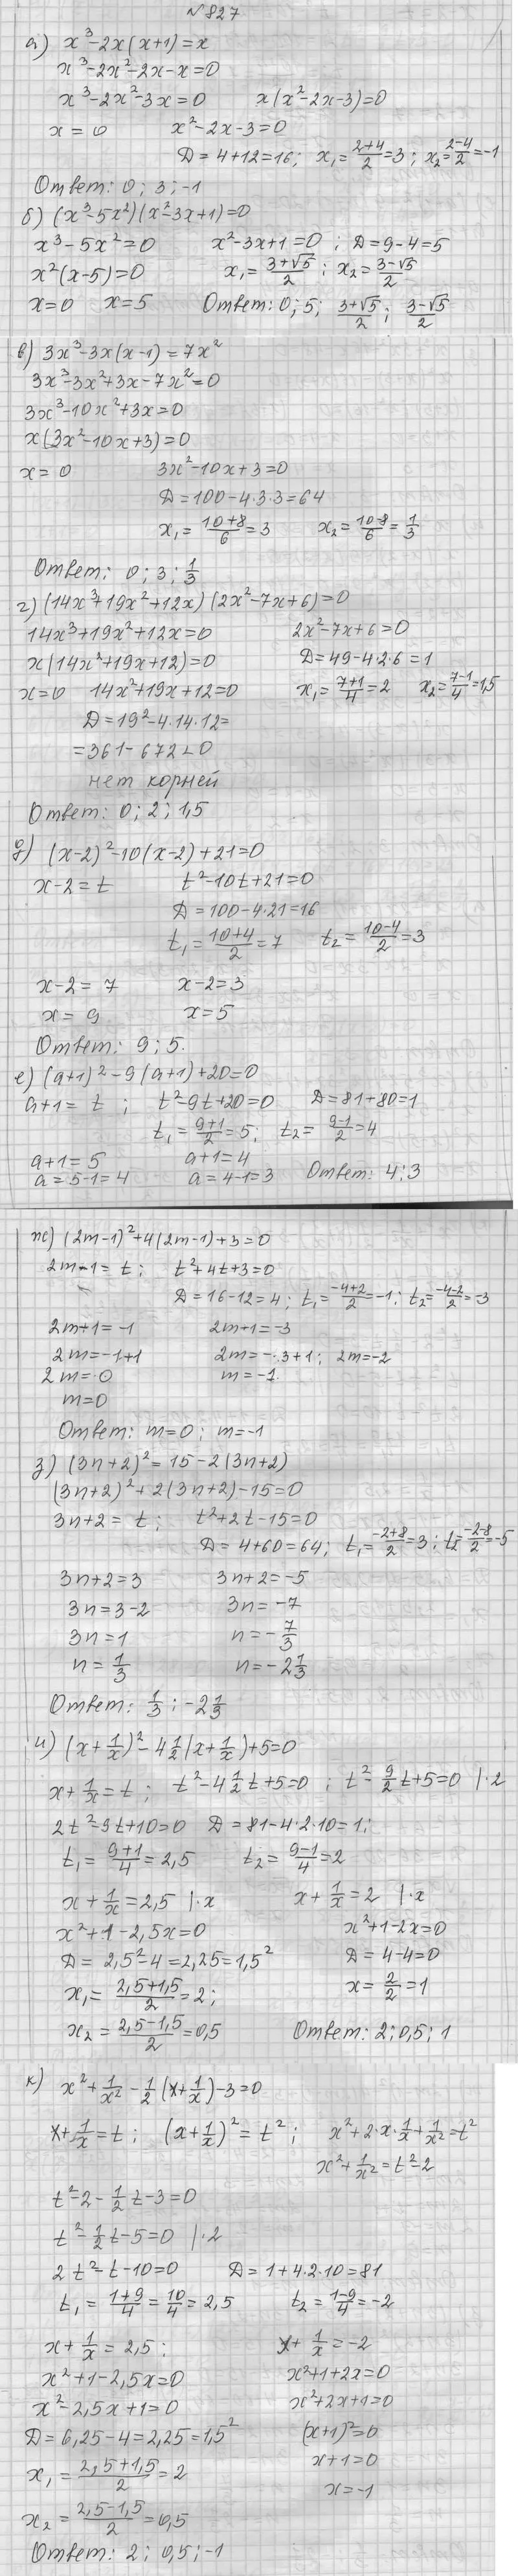 № 827
а) x³-2x(x+1)=x
x³-2x²-2x-x=0
x³-2x²-3x=0   x(x²-2x-3)=0
x=0   x²-2x-3=0
D=4+12=16; x₁=(2+4)/2=3; x₂=(2-4)/2=-1
Ответ: 0; 3; -1
б) (x³-5x²)(x²-3x+1)=0
x³-5x²=0   x²-3x+1=0; D=9-4=5
x²(x-5)=0   x₁=(3+√5)/2; x₂=(3-√5)/2
x=0   x=5   Ответ: 0; 5; (3+√5)/2; (3-√5)/2
в) 3x³-3x(x-1)=7x²
3x³-3x²+3x-7x²=0
3x³-10x²+3x=0
x(3x²-10x+3)=0
x=0   3x²-10x+3=0
D=100-4·3·3=64
x₁=(10+8)/6=3   x₂=(10-8)/6=1/3
Ответ: 0; 3; 1/3
г) (14x³+19x²+12x)(2x²-7x+6)=0
14x³+19x²+12x=0   2x²-7x+6=0
x(14x²+19x+12)=0   D=49-4·2·6=1
x=0   14x²+19x+12=0   x₁=(7+1)/4=2   x₂=(7-1)/4=1,5
D=19²-4·14·12=
=361-672<0
нет корней
Ответ: 0; 2; 1,5
д) (x-2)²-10(x-2)+21=0
x-2=t   t²-10t+21=0
D=100-4·21=16
t₁=(10+4)/2=7   t₂=(10-4)/2=3
x-2=7   x-2=3
x=9   x=5
Ответ: 9; 5.
е) (a+1)²-9(a+1)+20=0
a+1=t;   t²-9t+20=0   D=81-80=1
t₁=(9+1)/2=5; t₂=(9-1)/2=4
a+1=5   a+1=4
a=5-1=4   a=4-1=3   Ответ: 4; 3
ж) (2m-1)²+4(2m-1)+3=0
2m-1=t;   t²+4t+3=0
D=16-12=4; t₁=(-4+2)/2=-1; t₂=(-4-2)/2=-3
2m+1=-1   2m+1=-3
2m=-1+1   2m=-3+1; 2m=-2
2m=0   m=-1
m=0
Ответ: m=0; m=-1
з) (3n+2)²=15-2(3n+2)
(3n+2)²+2(3n+2)-15=0
3n+2=t;   t²+2t-15=0
D=4+60=64; t₁=(-2+8)/2=3; t₂=(-2-8)/2=-5
3n+2=3   3n+2=-5
3n=3-2   3n=-7
3n=1   n=-7/3
n=1/3   n=-2 1/3
Ответ: 1/3; -2 1/3
и) (x+1/x)²-4 1/2(x+1/x)+5=0
x+1/x=t;   t²-4 1/2 t+5=0; t²-9/2 t+5=0 |·2
2t²-9t+10=0   D=81-4·2·10=1;
t₁=(9+1)/4=2,5   t₂=(9-1)/4=2
x+1/x=2,5 |·x   x+1/x=2 |·x
x²+1-2,5x=0   x²+1-2x=0
D=2,5²-4=2,25=1,5²   D=4-4=0
x₁=(2,5+1,5)/2=2;   x=2/2=1
x₂=(2,5-1,5)/2=0,5   Ответ: 2; 0,5; 1
к) x²+1/x²-1/2(x+1/x)-3=0
x+1/x=t;   (x+1/x)²=t²;   x²+2·x·1/x+1/x²=t²
x²+1/x²=t²-2
t²-2-1/2 t-3=0
t²-1/2 t-5=0 |·2
2t²-t-10=0   D=1+4·2·10=81
t₁=(1+9)/4=10/4=2,5   t₂=(1-9)/4=-2
x+1/x=2,5;   x+1/x=-2
x²+1-2,5x=0   x²+1+2x=0
x²-2,5x+1=0   x²+2x+1=0
D=6,25-4=2,25=1,5²   (x+1)²=0
x₁=(2,5+1,5)/2=2   x+1=0
x=-1
x₂=(2,5-1,5)/2=0,5
Ответ: 2; 0,5; -1